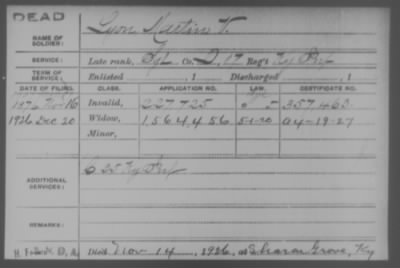 DEAD
NAME OF SOLDIER: Lyon Martin V.
SERVICE: Late rank, Sgt Co. D, 17 Reg't Ky Inf
TERM OF SERVICE: Enlisted , 1 Discharged , 1
DATE OF FILING. CLASS. APPLICATION NO. LAW. CERTIFICATE NO.
1876 Nov 16 Invalid, 227725 357463
1926 Dec 20 Widow, 1564456 5-1-20 A4-19-27
Minor,
ADDITIONAL SERVICES: C 25 Ky Inf
REMARKS:
Died Nov 14, 1926, at Sharon Grove, Ky